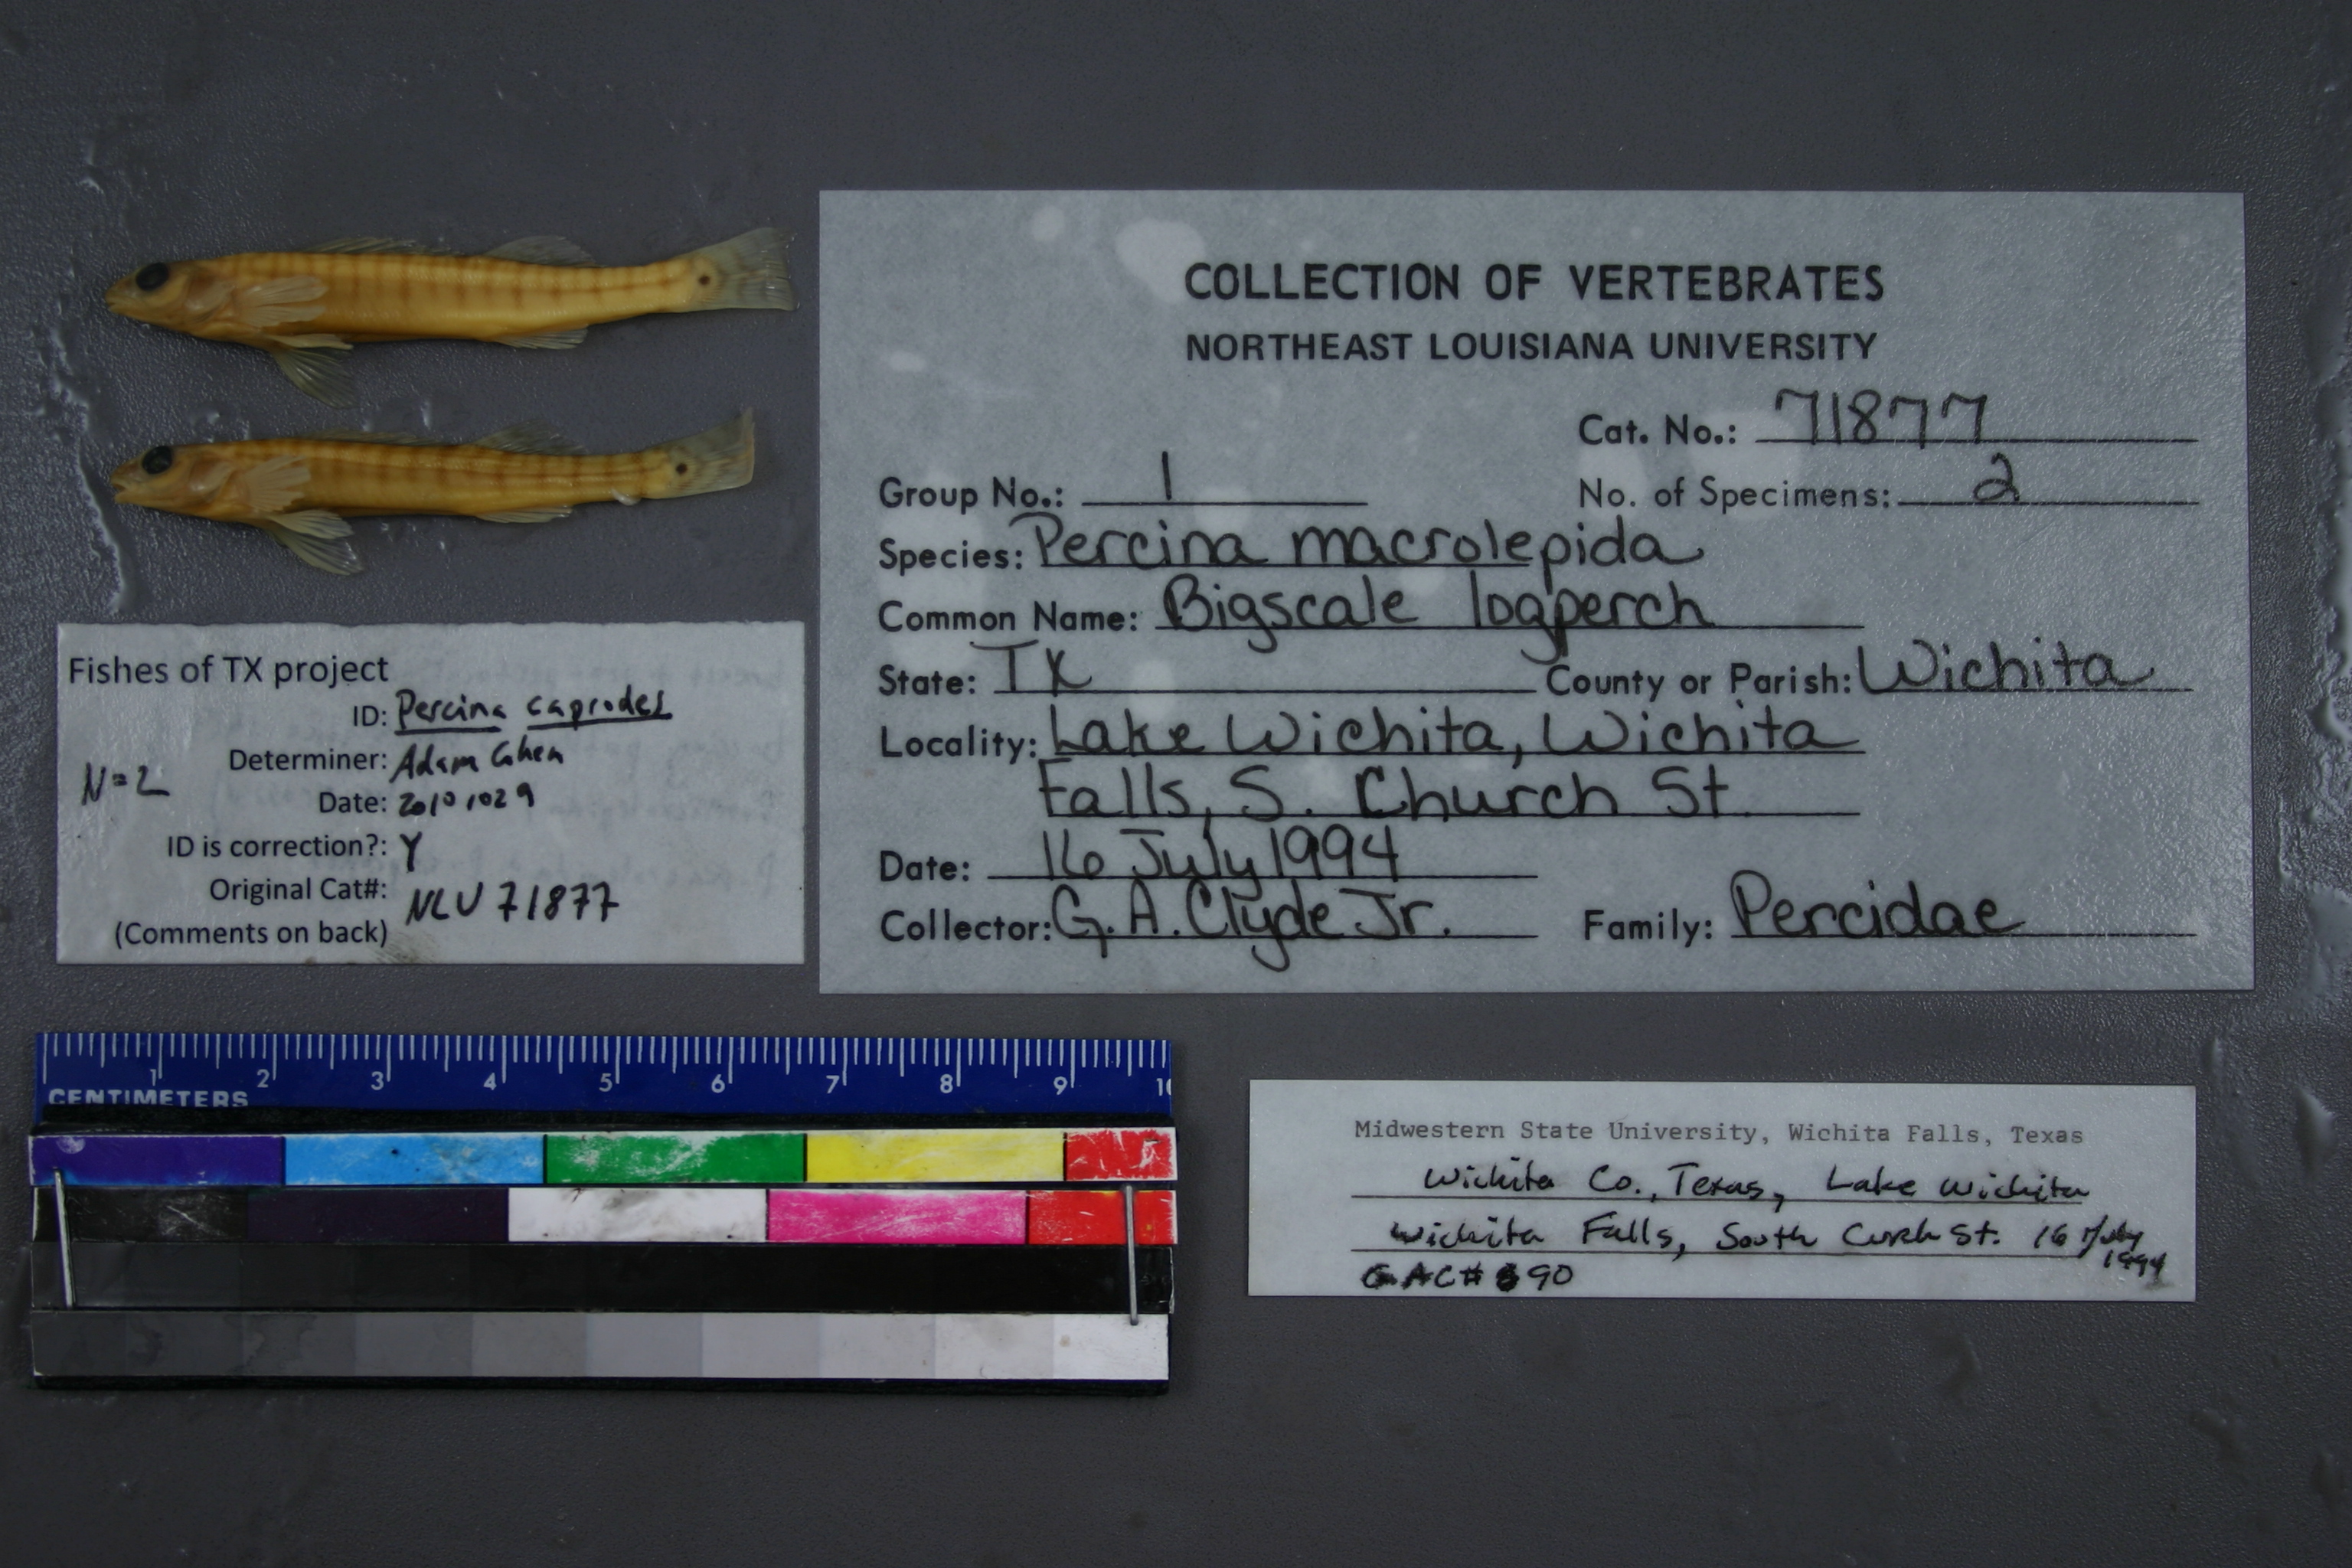 COLLECTION OF VERTEBRATES
NORTHEAST LOUISIANA UNIVERSITY
Cat. No.: 71877
Group No.: 1 No. of Specimens: 2
Species: Percina macrolepida
Common Name: Bigscale logperch
State: TX County or Parish: Wichita
Locality: Lake Wichita, Wichita
Falls, S. Church St.
Date: 16 July 1994
Collector: G. A. Clyde Jr. Family: Percidae
Fishes of TX project
ID: Percina caprodes
Determiner: Adam Cohen
N=2
Date: 20101029
ID is correction?: Y
Original Cat#: NLU 71877
(Comments on back)
1 2 3 4 5 6 7 8 9 10
CENTIMETERS
Midwestern State University, Wichita Falls, Texas
Wichita Co., Texas, Lake Wichita
Wichita Falls, South St. 16 July
1994
GAC# 90